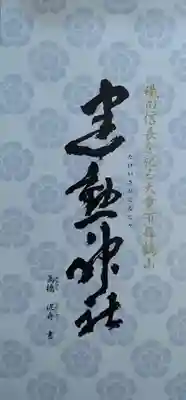 織田信長を祀る天童市舞鶴山
建勲神社
たけいさおじんじゃ
高橋 書